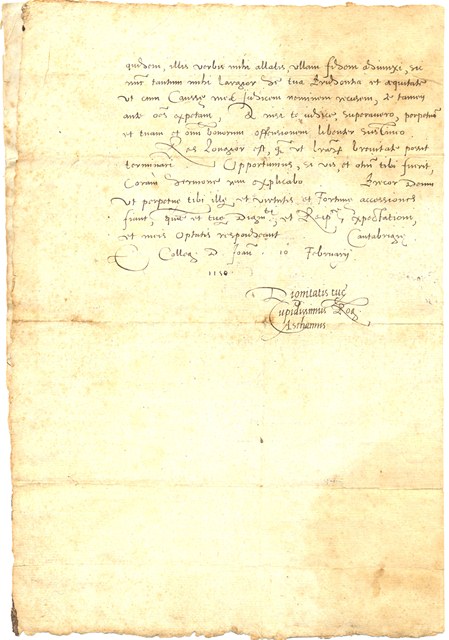 quidem, illis verbis mihi allatis ullam fidem adiunxi, sic
nūc tantum mihi largior de tua Prudentia et aequitate
ut cum Causse meæ Judicem neminem recusem, te tamen
ante oēs expetam, Et nisi te iudice superavero, perpetuā
et tuam et oīm bonorum offensionem libenter sustineo
Res longior est, q̄ ut brevitate possit
terminari Opportunius, si vis, et otiū tibi fuerit,
Coram Sermone rem explicabo Precor Deum
ut perpetue tibi ille et virtutis et Fortune accessiones
fiant, que et tue Dignitⁱ, et Reip. expectationi,
et meis Optatis respondeant Cantabrigie
E Colleg D. Joan. 10 February
Dignitatis tue
Cupidissimus Rog.
Aschamus